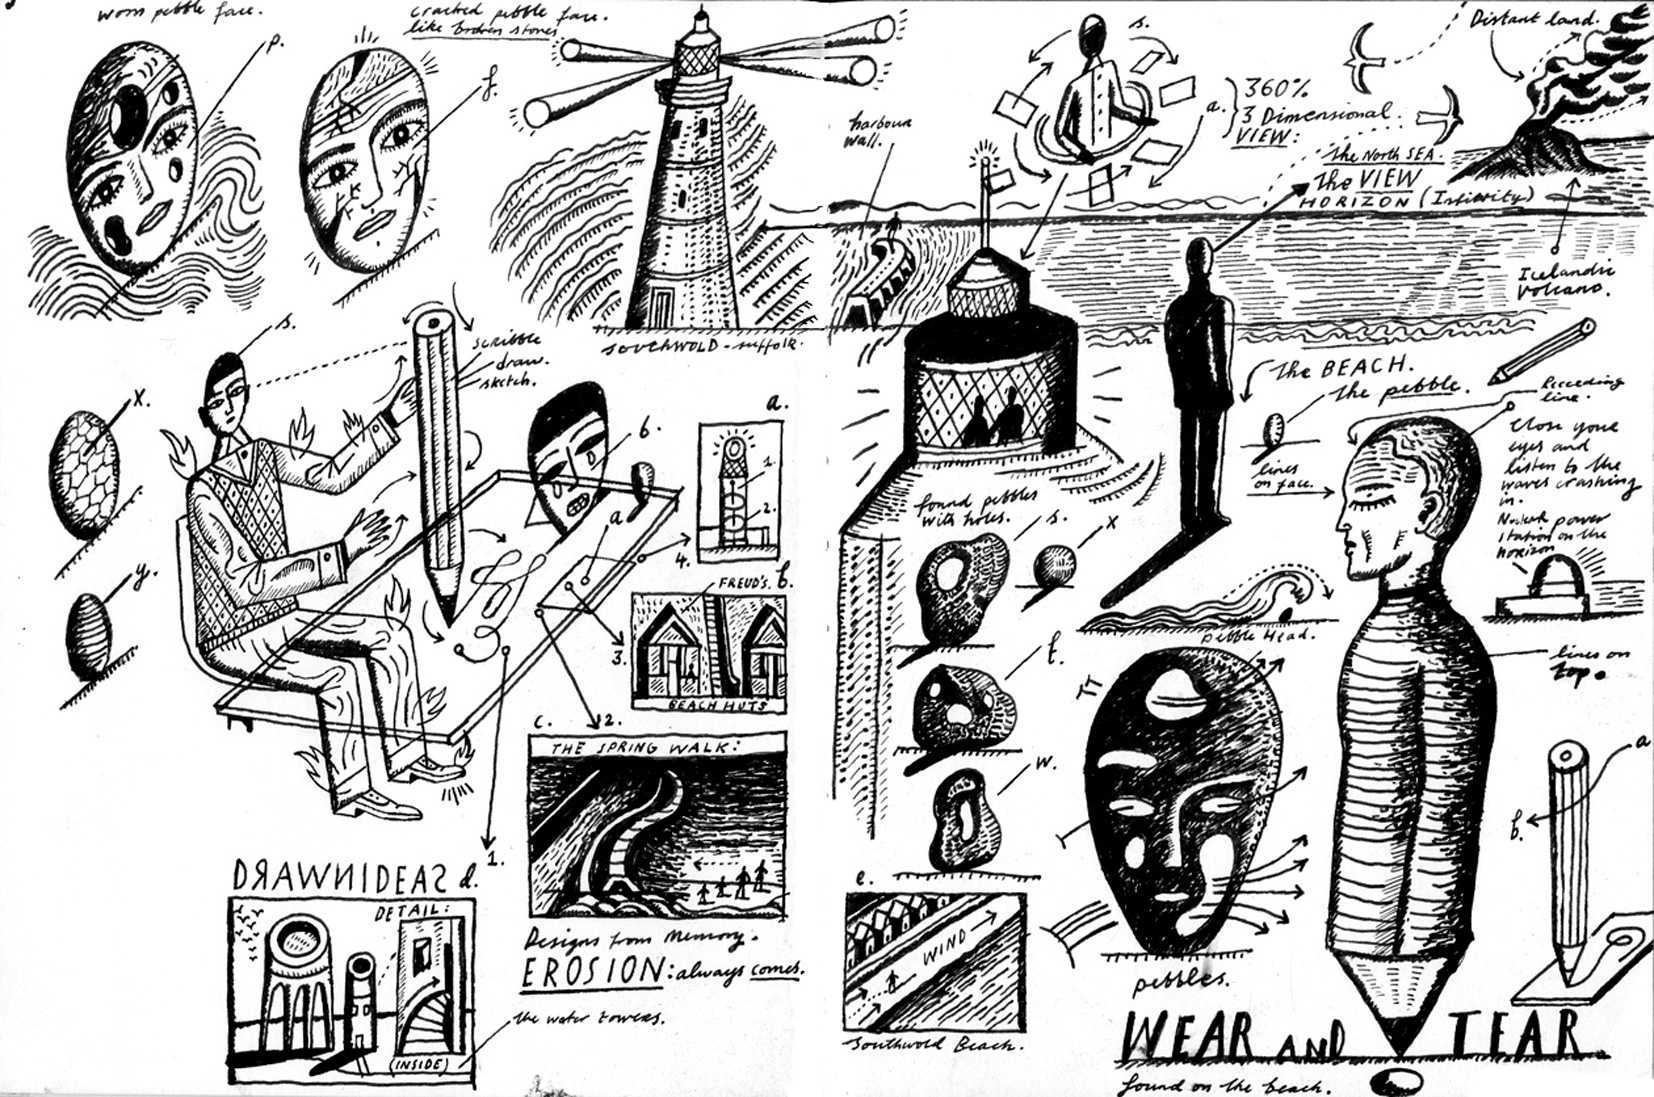 worn pebble face.
p.
cracked pebble face.
like broken stones
f.
s.
a.
360%
3 Dimensional
VIEW:
Distant land.
harbour
wall.
the North SEA.
the VIEW
HORIZON (Infinity)
Icelandic
Volcano.
SOUTHWOLD - suffolk.
s.
scribble
draw.
sketch.
x.
y.
6.
a
a.
1.
2.
4.
FREUD'S. b.
3.
BEACH HUTS
c.
2.
THE SPRING WALK:
1.
Designs from Memory.
EROSION: always comes.
DRAWNIDEAS d.
DETAIL:
(INSIDE)
the water towers.
the BEACH.
the pebble.
lines
on face.
Receeding
line.
Close your
eyes and
listen to the
waves crashing
in.
Nuclear power
station on the
horizon
found pebbles
with holes.
s.
x
t.
w.
pebble Head.
lines on
top.
a
b.
e.
WIND
Southwold Beach.
pebbles.
WEAR AND TEAR
found on the beach.